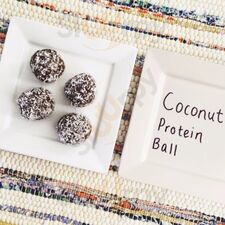 Coconut
Protein
Ball